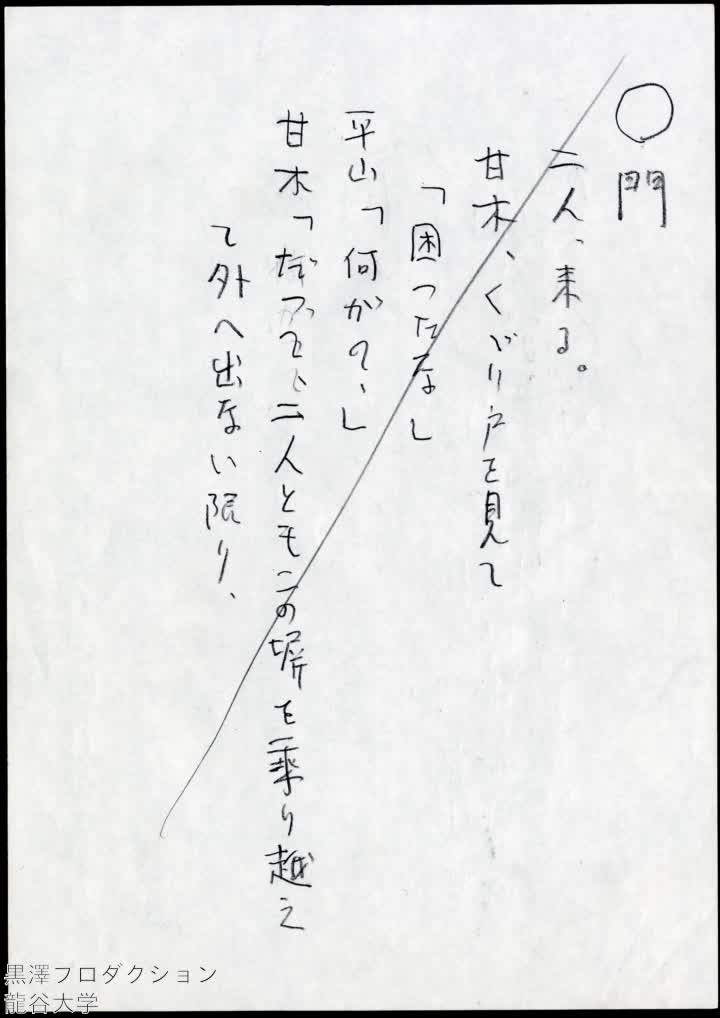 ○門
二人、来る。
甘木、くゞり戸を見て
「困ったな」
平山「何が?、」
甘木「だって、二人ともこの塀を乗り越え
て外へ出ない限り、
黒澤プロダクション
龍谷大学